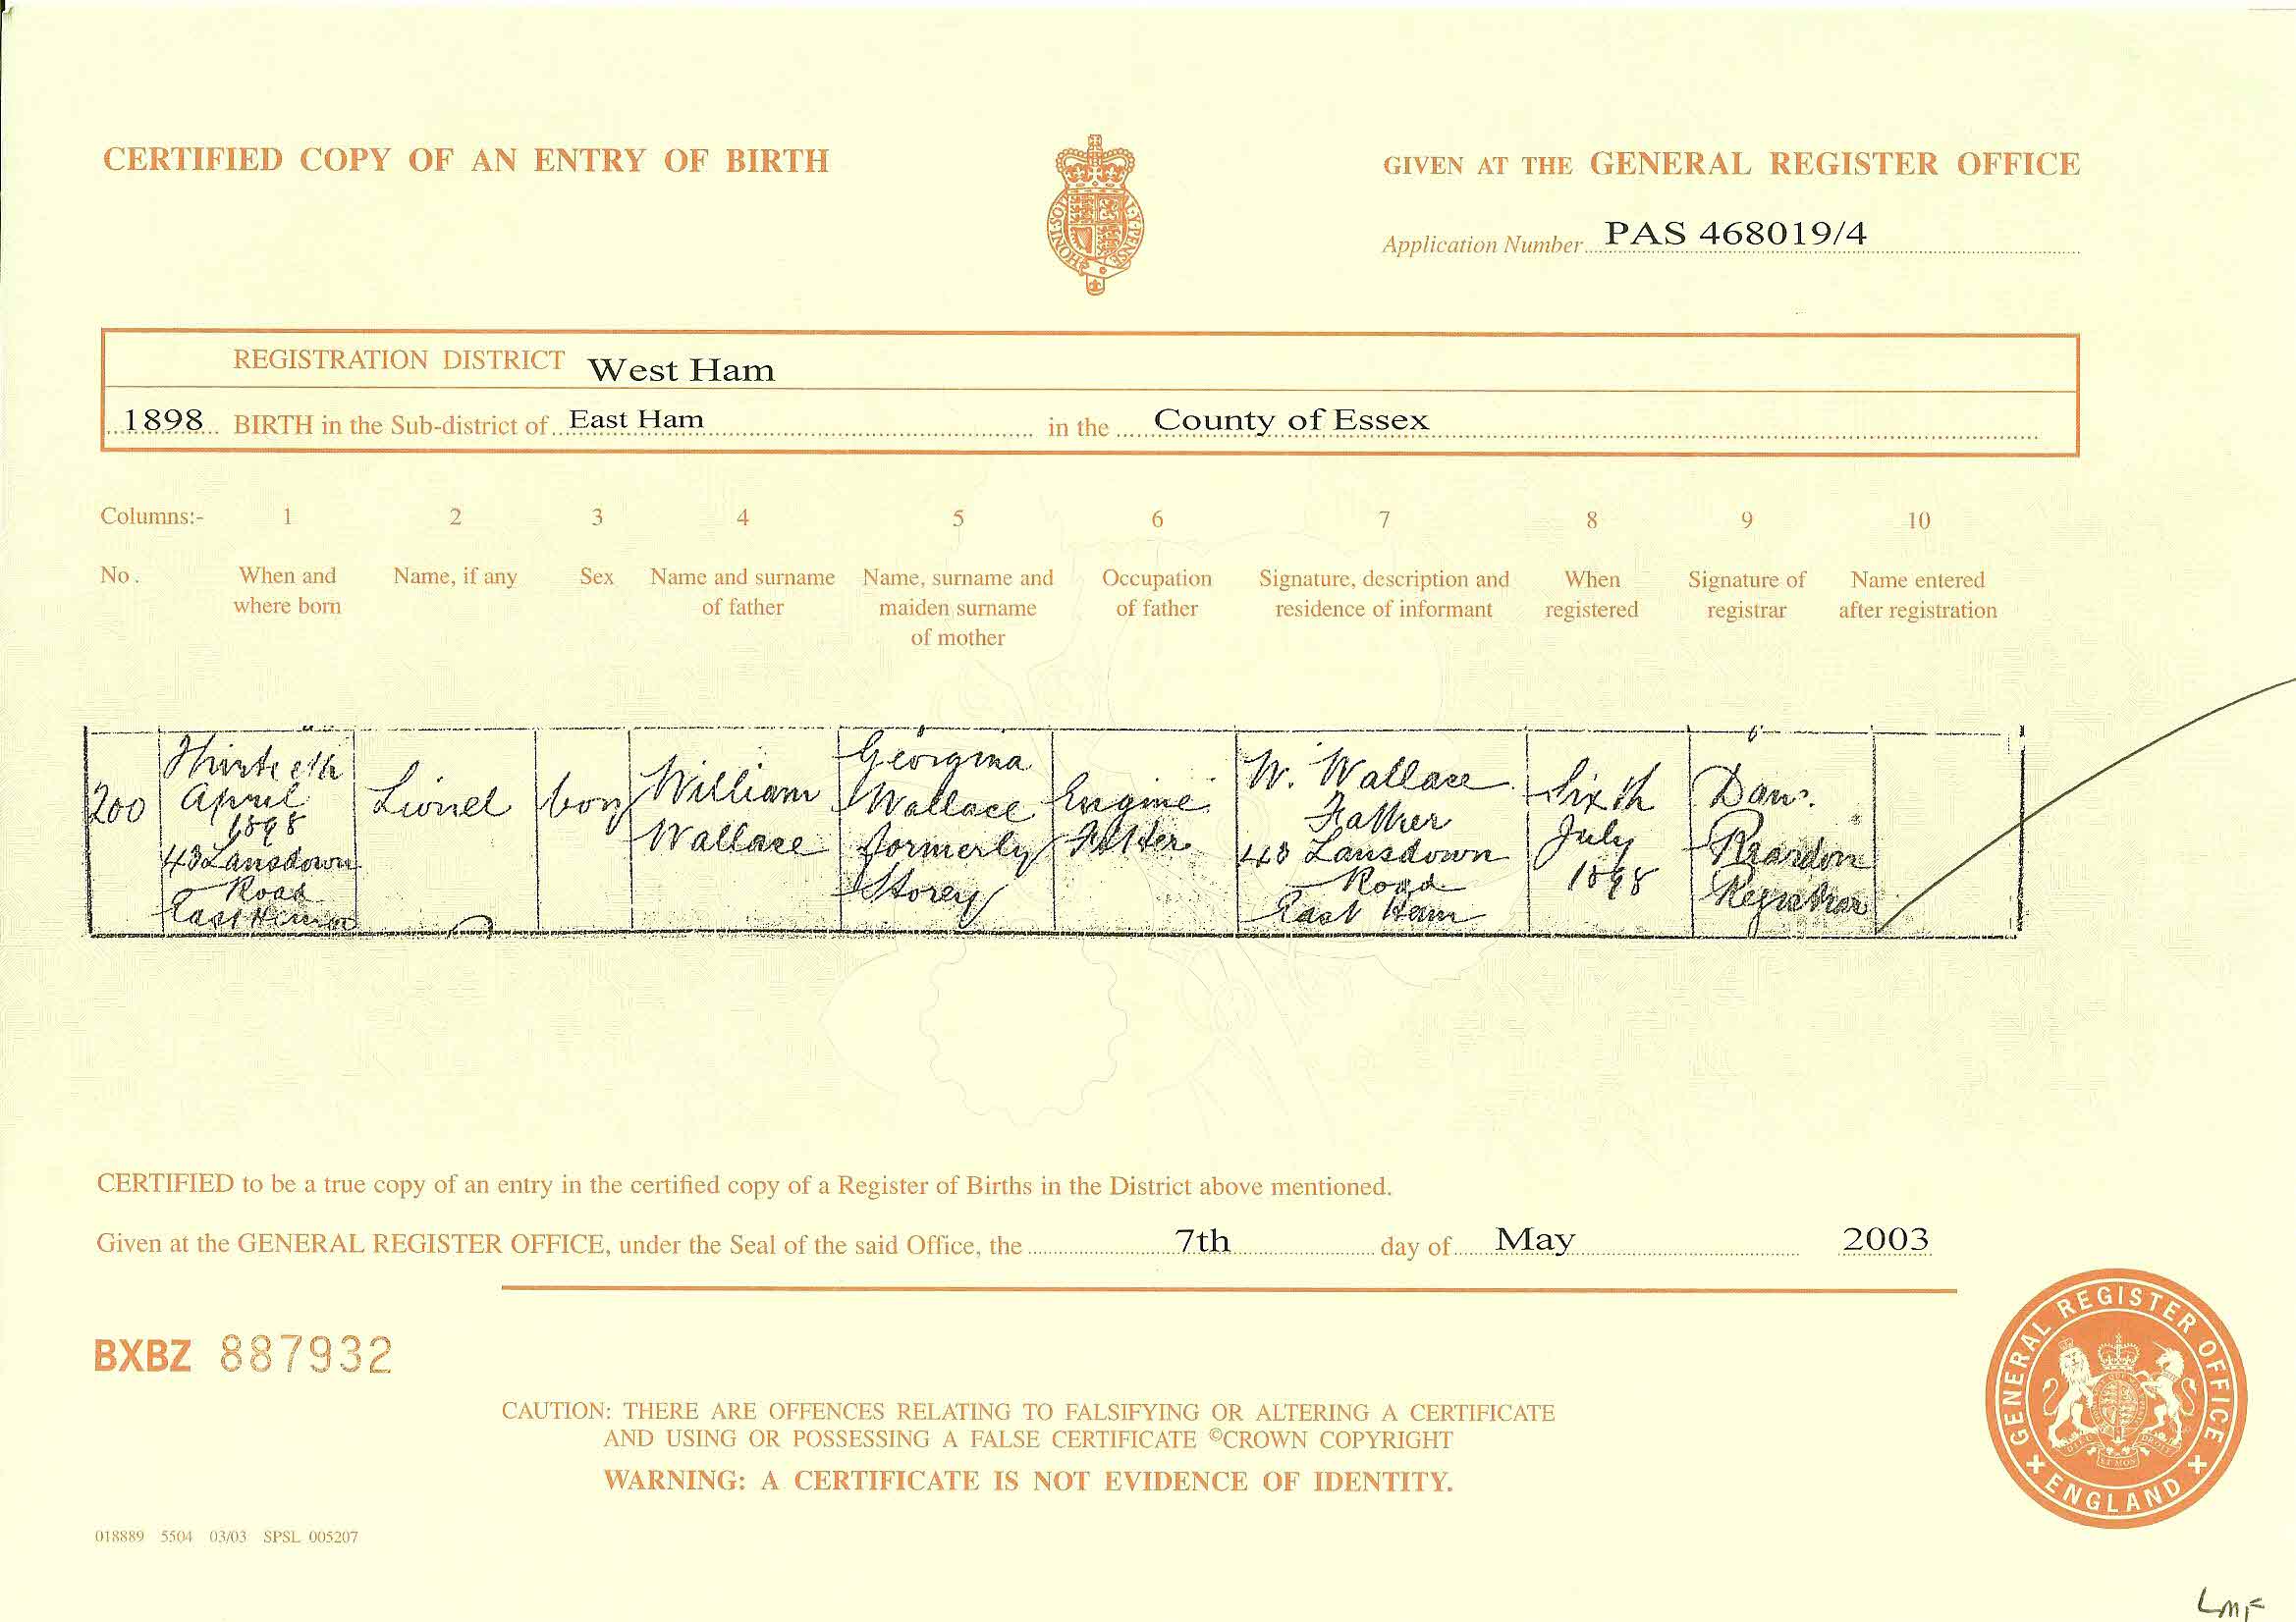 CERTIFIED COPY OF AN ENTRY OF BIRTH
GIVEN AT THE GENERAL REGISTER OFFICE
HONI·SOIT Y·PENSE
Application Number PAS 468019/4
REGISTRATION DISTRICT West Ham
1898 BIRTH in the Sub-district of East Ham in the County of Essex
Columns:- 1 2 3 4 5 6 7 8 9 10
No. When and where born
Name, if any
Sex
Name and surname of father
Name, surname and maiden surname of mother
Occupation of father
Signature, description and residence of informant
When registered
Signature of registrar
Name entered after registration
200
Thirtieth
April
1898
43 Lansdown
Road
East Ham
Lionel
boy
William
Wallace
Georgina
Wallace
formerly
Storey
Engine
Fitter
W. Wallace
Father
43 Lansdown
Road
East Ham
Sixth
July
1898
Danl.
Reardon
Registrar
CERTIFIED to be a true copy of an entry in the certified copy of a Register of Births in the District above mentioned.
Given at the GENERAL REGISTER OFFICE, under the Seal of the said Office, the 7th day of May 2003
BXBZ 887932
GENERAL REGISTER OFFICE
ENGLAND
CAUTION: THERE ARE OFFENCES RELATING TO FALSIFYING OR ALTERING A CERTIFICATE
AND USING OR POSSESSING A FALSE CERTIFICATE ©CROWN COPYRIGHT
WARNING: A CERTIFICATE IS NOT EVIDENCE OF IDENTITY.
018889 5504 03/03 SPSL 005207
LMF